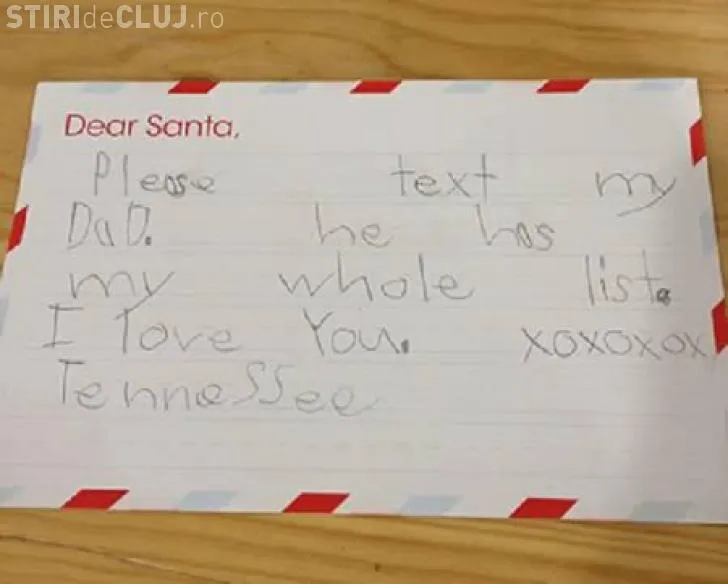 STIRIdeCLUJ.ro
Dear Santa,
Please text my
DaD. he has
my whole list.
I love You. xoxoxox
Tennessee